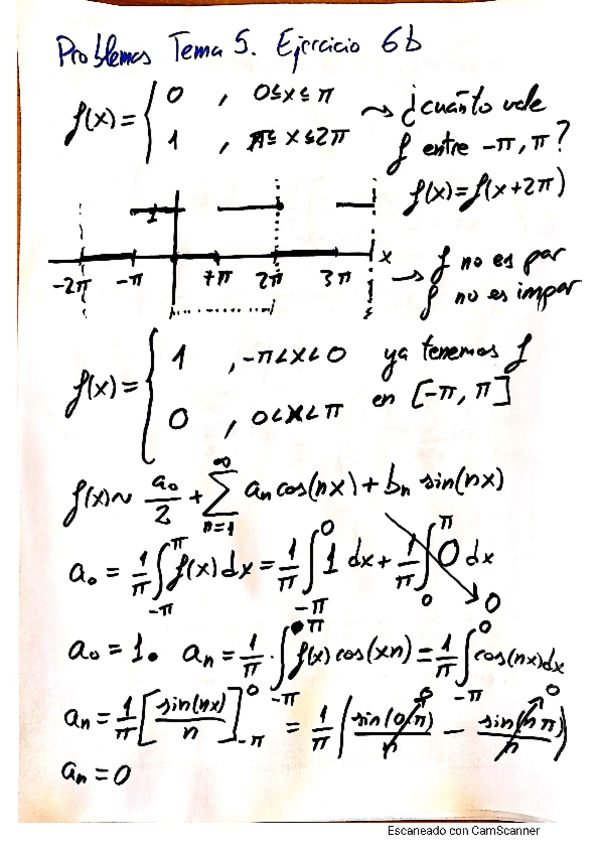 Problemas Tema 5. Ejercicio 6b
f(x) = { 0 , 0≤x≤π
1 , π≤x≤2π
→ ¿cuánto vale
f entre -π, π?
f(x)=f(x+2π)
1
-2π -π π 2π 3π x
→ f no es par
f no es impar
f(x) = { 1 , -π<x<0
0 , 0<x<π
ya tenemos f
en [-π, π]
f(x)~ a₀/2 + ∑_{n=1}^{∞} aₙ cos(nx) + bₙ sin(nx)
a₀ = 1/π ∫_{-π}^{π} f(x) dx = 1/π ∫_{-π}^{0} 1 dx + 1/π ∫_{0}^{π} 0 dx → 0
a₀ = 1. aₙ = 1/π · ∫_{-π}^{π} f(x) cos(xn) = 1/π ∫_{-π}^{0} cos(nx)dx
aₙ = 1/π [sin(nx)/n]_{-π}^{0} = 1/π (sin(0π)/n → 0 − sin(nπ)/n → 0)
aₙ = 0
Escaneado con CamScanner